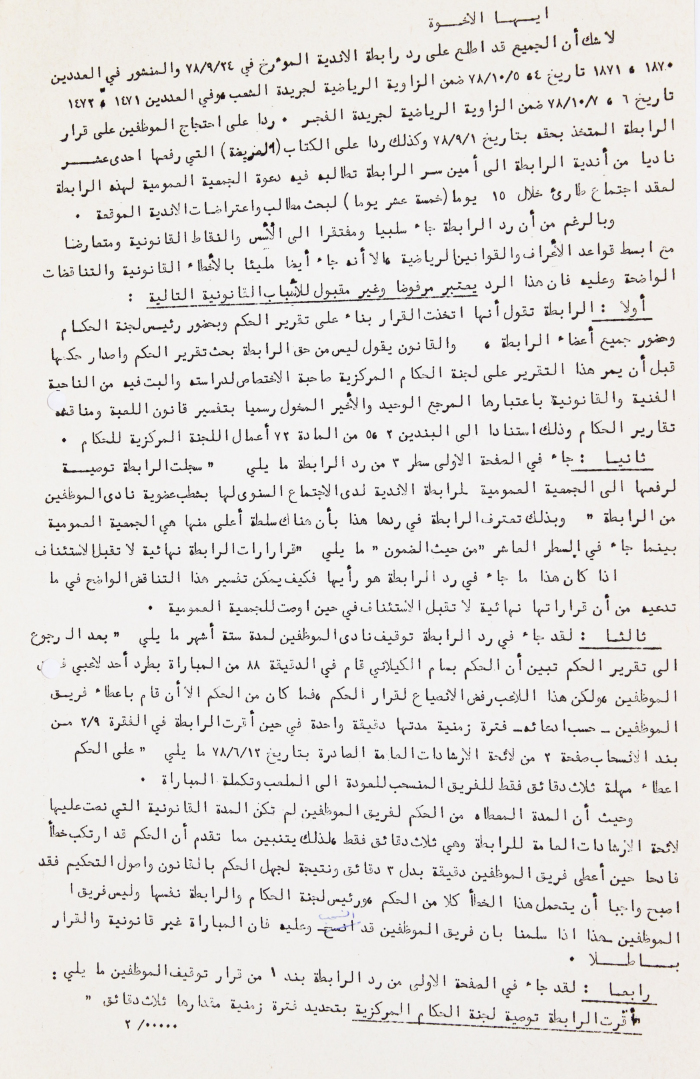 ايـها الاخـوة
لا شك أن الجميع قد اطلع على رد رابطة الاندية المؤرخ في ٧٨/٩/٢٤ والمنشور في العددين
١٨٧٠ ، ١٨٧١ تاريخ ٤، ٧٨/١٠/٥ ضمن الزاوية الرياضية لجريدة الشعب، وفي العددين ١٤٧١ ، ١٤٧٢
تاريخ ٦ ، ٧٨/١٠/٧ ضمن الزاوية الرياضية لجريدة الفجر . ردا على احتجاج الموظفين على قرار
الرابطة المتخذ بحقه بتاريخ ٧٨/٩/١ وكذلك ردا على الكتاب (العريضة) التي رفعها احدى عشـــر
ناديا من أندية الرابطة الى أمين سـر الرابطة تطالبه فيه دعوة الجمعية العمومية لهذه الرابطة
لعقد اجتماع طارئ خلال ١٥ يوما (خمسة عشر يوما) لبحث مطالب واعتراضات الاندية الموقعة .
وبالرغم من أن رد الرابطة جاء سلبيا ومفتقرا الى الأسس والنقاط القانونية ومتعارضا
مع ابسط قواعد الأعراف والقوانين الرياضية ، الا أنه جاء أيضا مليئا بالأخطاء القانونية والتناقضات
الواضحة وعليه فان هذا الرد يعتبر مرفوضا وغير مقبول للأسباب القانونية التالية :
أولا : الرابطة تقول أنها اتخذت القرار بناء على تقرير الحكم وبحضور رئيس لجنة الحكـام
وحضور جميع أعضاء الرابطة ، والقانون يقول ليس من حق الرابطة بحث تقرير الحكم واصدار حكمها
قبل أن يمر هذا التقرير على لجنة الحكام المركزية صاحبة الاختصاص لدراسته والبت فيه من الناحية
الفنية والقانونية باعتبارها المرجع الوحيد والأخير المخول رسميا بتفسير قانون اللعبة ومناقشة
تقارير الحكام وذلك استنادا الى البندين ٢ ،٥ من المادة ٧٢ أعمال اللجنة المركزية للحكام .
ثانيـا : جاء في الصفحة الاولى سطر ٣ من رد الرابطة ما يلي " سجلت الرابطة توصيـــة
لرفعها الى الجمعية العمومية لمرابطة الاندية لدى الاجتماع السنوى لها بشطب عضوية نادى الموظفين
من الرابطة " وبذلك تعترف الرابطة في ردها هذا بأن هناك سلطة أعلى منها هي الجمعية العمومية
بينما جاء في السطر العاشر "من حيث المضمون" ما يلي "قرارات الرابطة نهائية لا تقبل الاستئناف
اذا كان هذا ما جاء في رد الرابطة هو رأيها فكيف يمكن تفسير هذا التناقض الواضح في ما
تدعيه من أن قراراتها نهائية لا تقبل الاستئناف في حين اوصت للجمعية العمومية .
ثالثـا : لقد جاء في رد الرابطة توقيف نادى الموظفين لمدة ستة أشهر ما يلي " بعد الرجوع
الى تقرير الحكم تبين أن الحكم بمام الكيلاني قام في الدقيقة ٨٨ من المباراة بطرد أحد لاعبي
الموظفين ، ولكن هذا اللاعب رفض الانصياع لقرار الحكم ، فما كان من الحكم الا أن قام باعطاء فريـق
الموظفين - حسب ادعائه - فترة زمنية مدتها دقيقة واحدة في حين أقرت الرابطة في الفقرة ٢/٩ مـن
بند الانسحاب صفحة ٢ من لائحة الارشادات العامة الصادرة بتاريخ ٧٨/٦/١٢ ما يلي " على الحكم
اعطاء مهلة ثلاث دقائق فقط للفريق المنسحب للعودة الى الملعب وتكملة المباراة .
وحيث أن المدة المعطاه من الحكم لفريق الموظفين لم تكن المدة القانونية التي نصت عليها
لائحة الارشادات العامة للرابطة وهي ثلاث دقائق فقط ، لذلك يتنبين مما تقدم أن الحكم قد ارتكب خطأ
فادحا حين أعطى فريق الموظفين دقيقة بدل ٣ دقائق ونتيجة لجهل الحكم بالقانون واصول التحكيم فقد
اصبح واجبا أن يتحمل هذا الخطأ كلا من الحكم ، ورئيس لجنة الحكام والرابطة نفسها وليس فريق ا
الموظفين هذا اذا سلمنا بان فريق الموظفين قد انسحب وعليه فان المباراة غير قانونية والقرار
بـاطـلا .
رابعـا : لقد جاء في الصفحة الاولى من رد الرابطة بند ١ من قرار توقيف الموظفين ما يلي :
"أقرت الرابطة توصية لجنة الحكام المركزية بتحديد فترة زمنية مقدارها ثلاث دقائق "
٢/٠٠٠٠٠